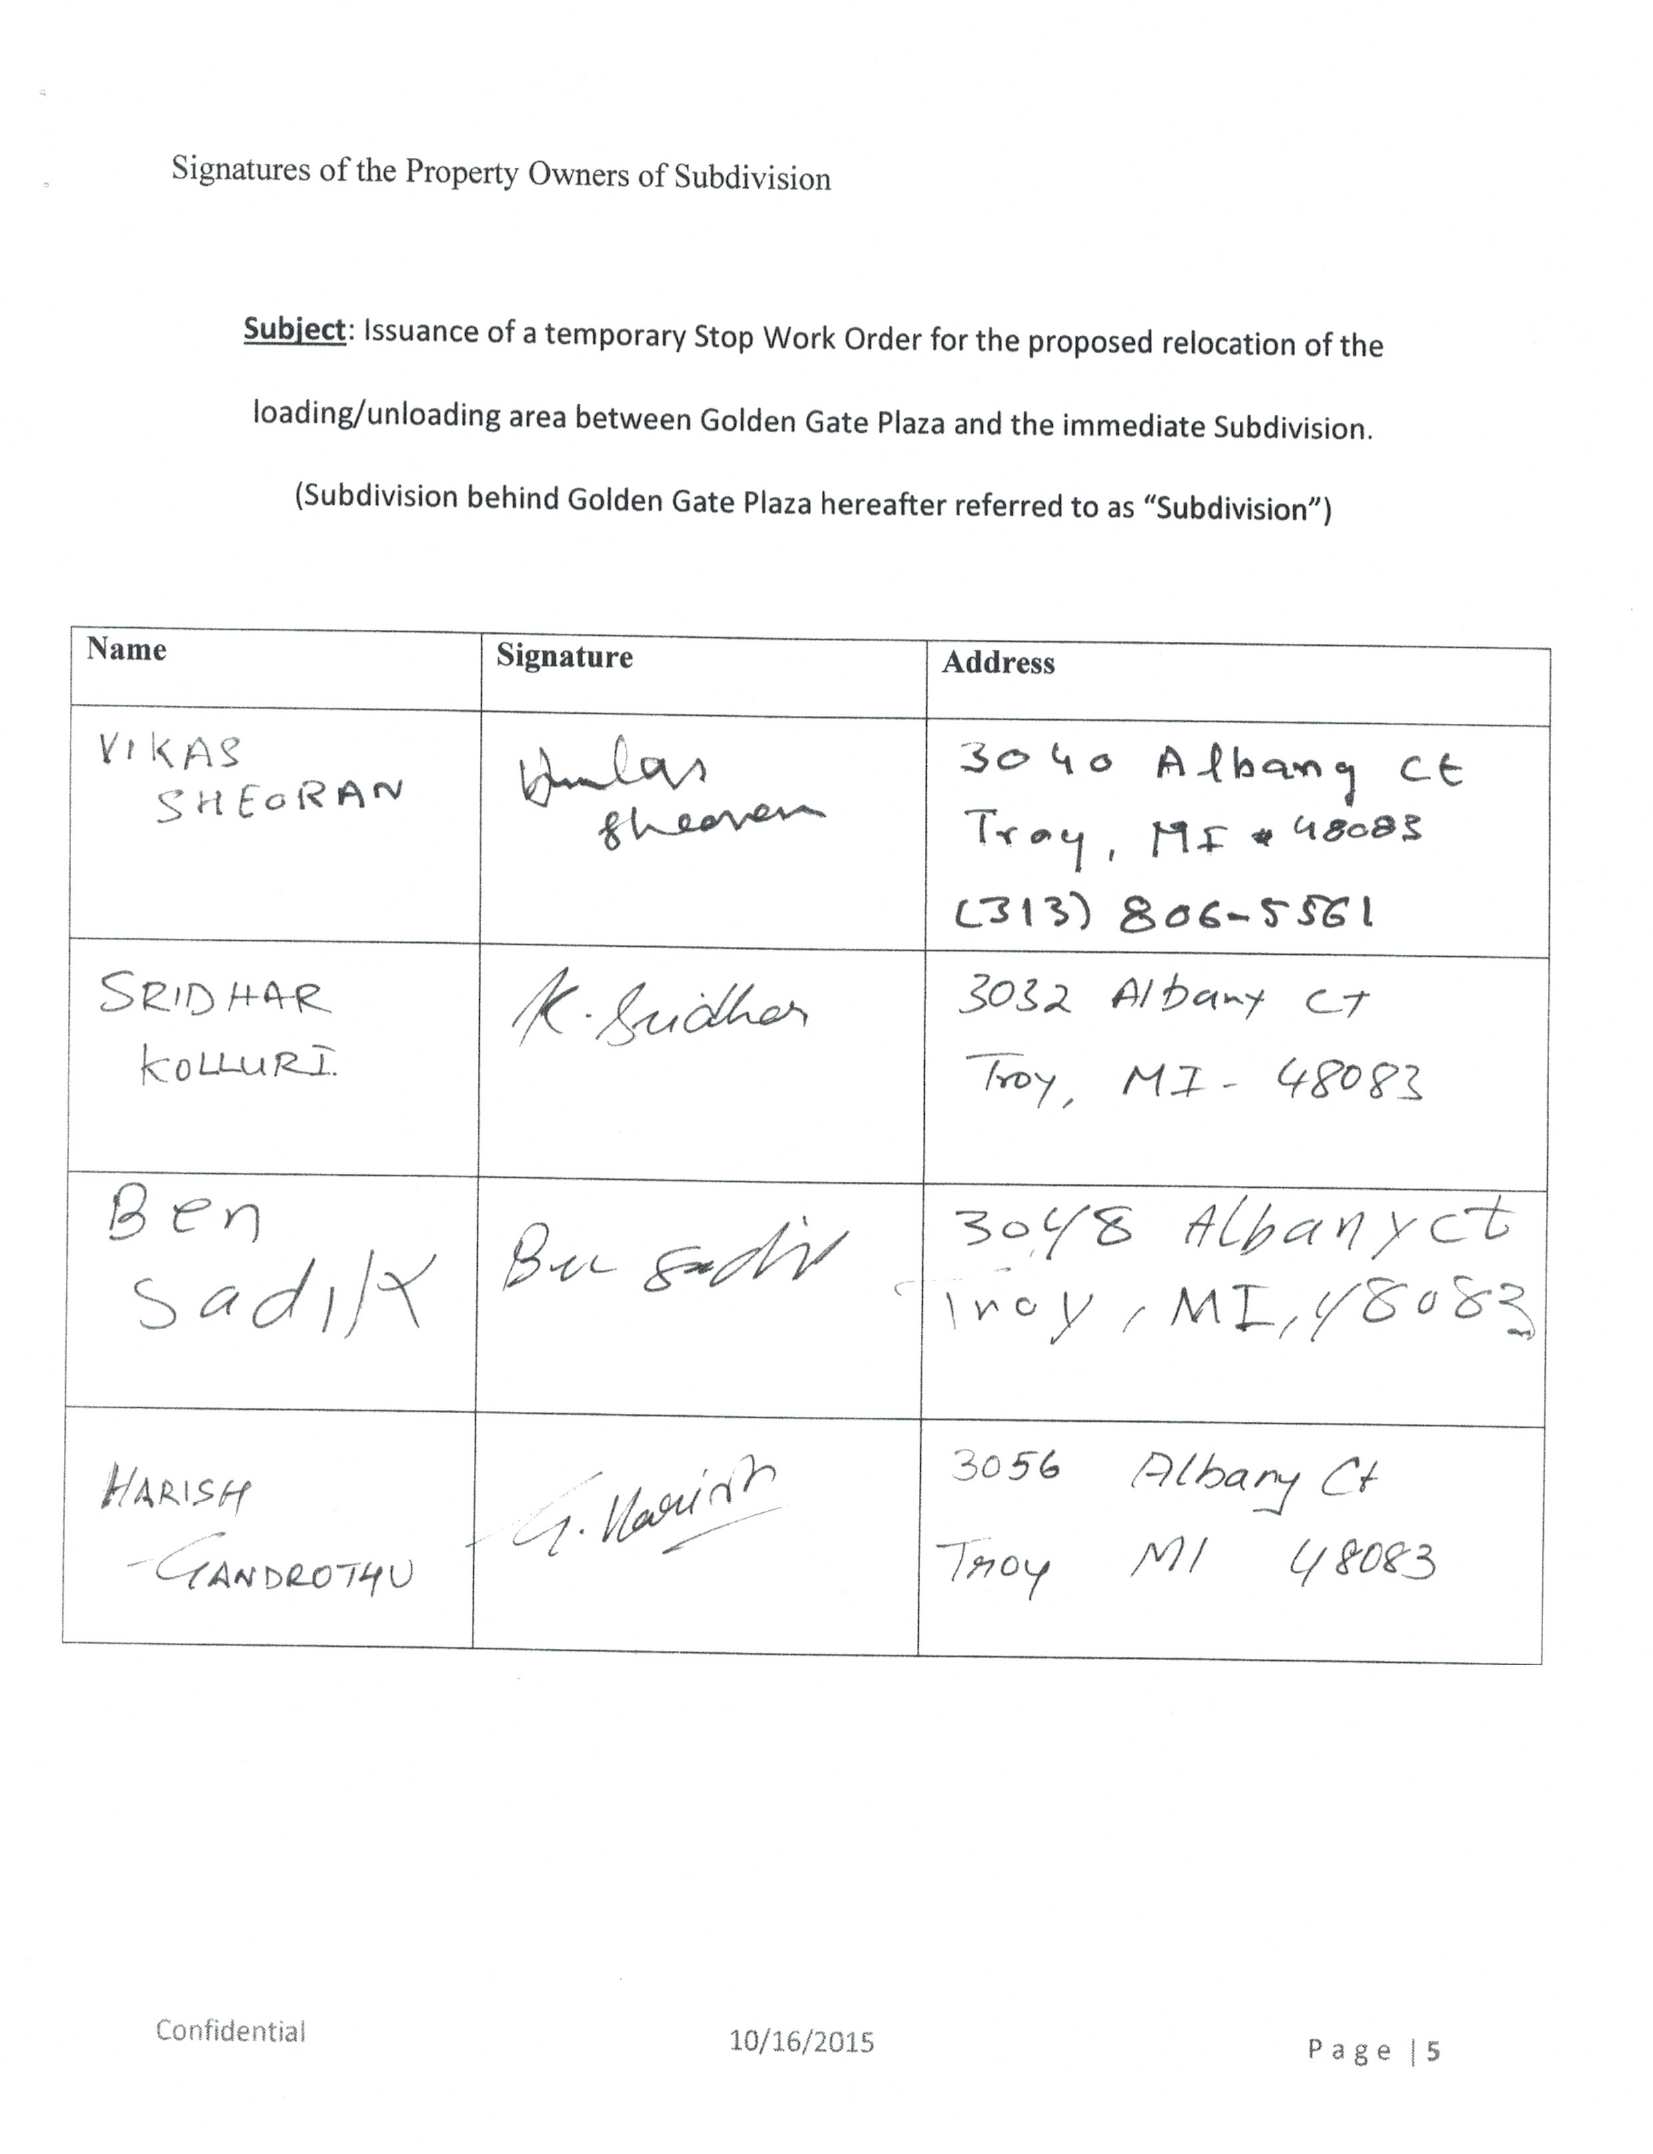 Signatures of the Property Owners of Subdivision
Subject: Issuance of a temporary Stop Work Order for the proposed relocation of the
loading/unloading area between Golden Gate Plaza and the immediate Subdivision.
(Subdivision behind Golden Gate Plaza hereafter referred to as “Subdivision”)
Name Signature Address
VIKAS
SHEORAN
Vikas
Sheoran
3040 Albany ct
Troy, MI 48083
(313) 806-5561
SRIDHAR
KOLLURI.
K. Sridhar
3032 Albany CT
Troy, MI - 48083
Ben
Sadik
Ben Sadik
3048 Albany ct
Troy, MI, 48083
HARISH
GANDROTHU
G. Harish
3056 Albany Ct
Troy MI 48083
Confidential 10/16/2015 Page | 5